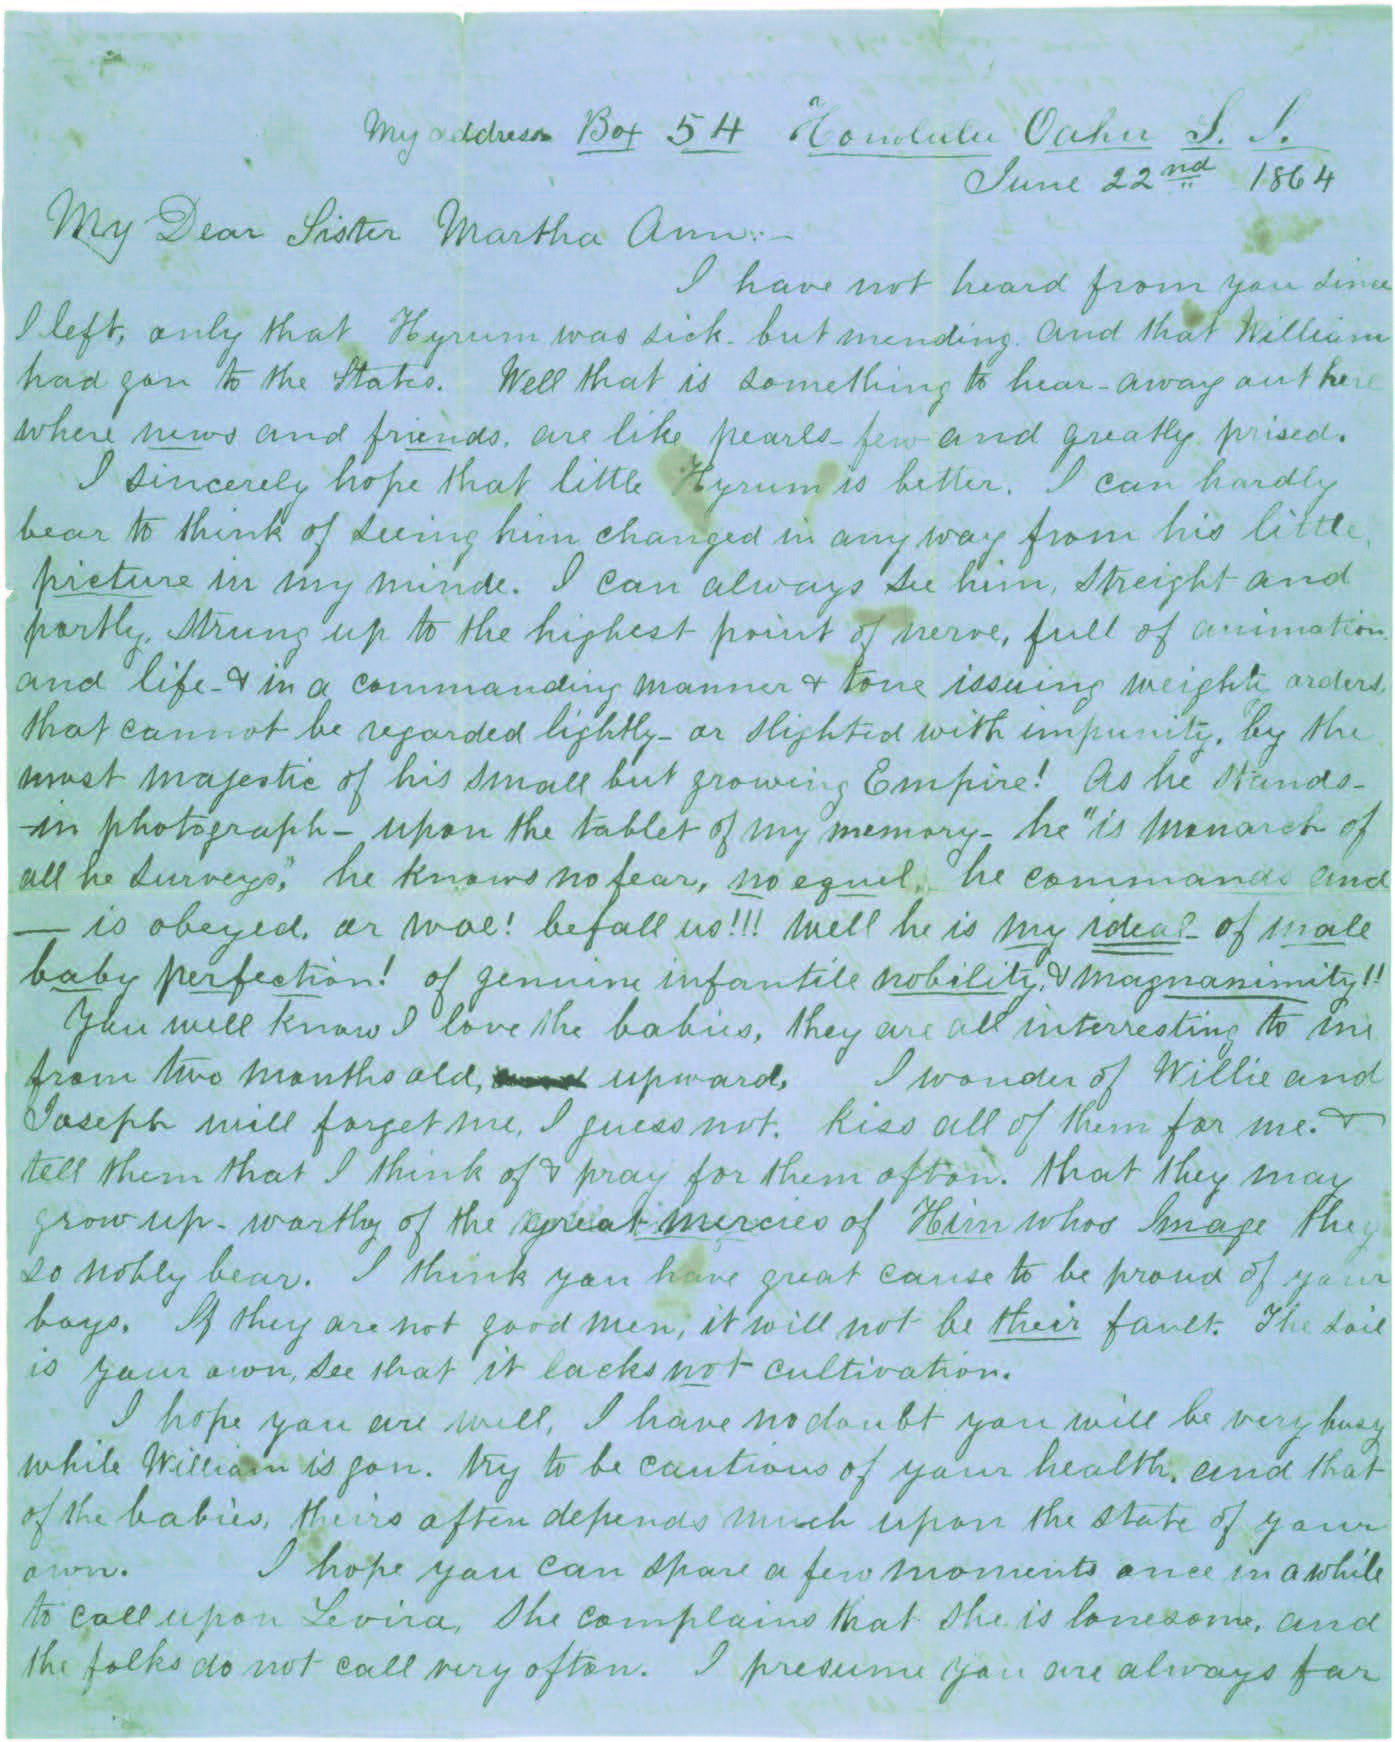 My address Box 54 Honolulu Oahu S. I.
June 22nd 1864
My Dear Sister Martha Ann:-
I have not heard from you since
I left, only that Hyrum was sick. but mending. and that William
had gon to the States. Well that is something to hear - away out here
where news and friends. are like pearls - few and greatly prised.
I sincerely hope that little Hyrum is better. I can hardly
bear to think of seeing him changed in any way from his little
picture in my minde. I can always see him, streight and
portly, strung up to the highest point of nerve, full of animation
and life - & in a commanding manner & tone issuing weighty orders,
that cannot be regarded lightly - or slighted with impunity, by the
most majestic of his small but growing Empire! As he stands -
- in photograph - upon the tablet of my memory - he "is monarch of
all he surveys," he knows no fear, no equel, he commands and
— is obeyed. or woe! befall us!!! well he is my ideal - of male
baby perfection! of genuine infantile nobility, & magnanimity!!
You well know I love the babies, they are all interresting to me
from two months old, upward. I wonder of Willie and
Joseph will forget me, I guess not. kiss all of them for me. &
tell them that I think of & pray for them often. that they may
grow up - worthy of the great mercies of Him whos Image they
so nobly bear. I think you have great cause to be proud of your
boys. If they are not good men, it will not be their fault. The soil
is your own, see that it lacks not cultivation.
I hope you are well, I have no doubt you will be very busy
while William is gon. try to be cautious of your health, and that
of the babies, theirs often depends much upon the state of your
own. I hope you can spare a few moments once in a while
to call upon Levira, she complains that she is lonesome, and
the folks do not call very often. I presume you are always far